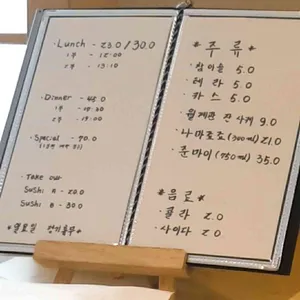 Lunch - 23.0 / 30.0
1부 - 12:00
2부 - 13:10
Dinner - 45.0
1부 - 17:30
2부 - 19:00
Special - 70.0
Take out
Sushi A - 20.0
Sushi B - 30.0
*일요일 정기휴무*
*주류*
· 참이슬 5.0
· 테라 5.0
· 카스 5.0
· 월계관 잔사케 9.0
· 나마쵸조 (300ml) 21.0
· 준마이 (750ml) 35.0
*음료*
· 콜라 2.0
· 사이다 2.0